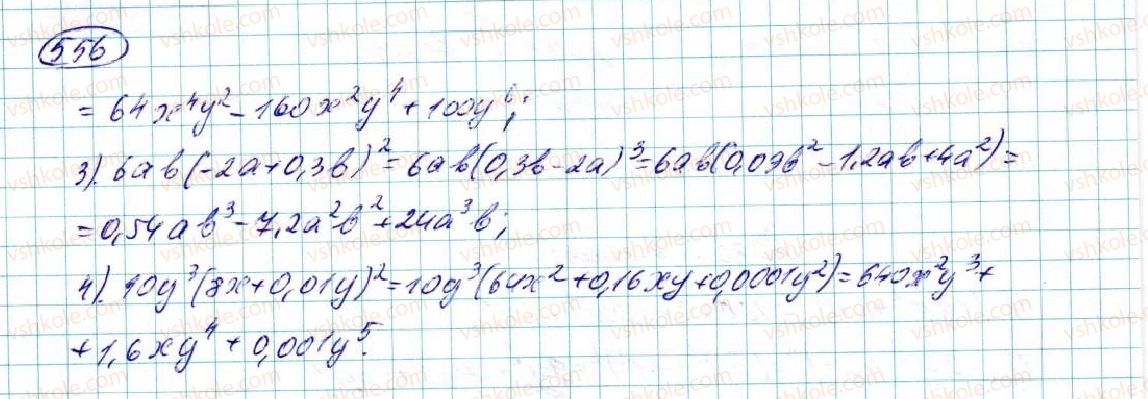 556
= 64x⁴y² - 160x²y⁴ + 100y⁶;
3). 6ab(-2a+0,3b)² = 6ab(0,3b-2a)³ = 6ab(0,09b² - 1,2ab + 4a²) =
= 0,54ab³ - 7,2a²b² + 24a³b;
4). 10y³(8x+0,01y)² = 10y³(64x² + 0,16xy + 0,0001y²) = 640x²y³ +
+ 1,6xy⁴ + 0,001y⁵.